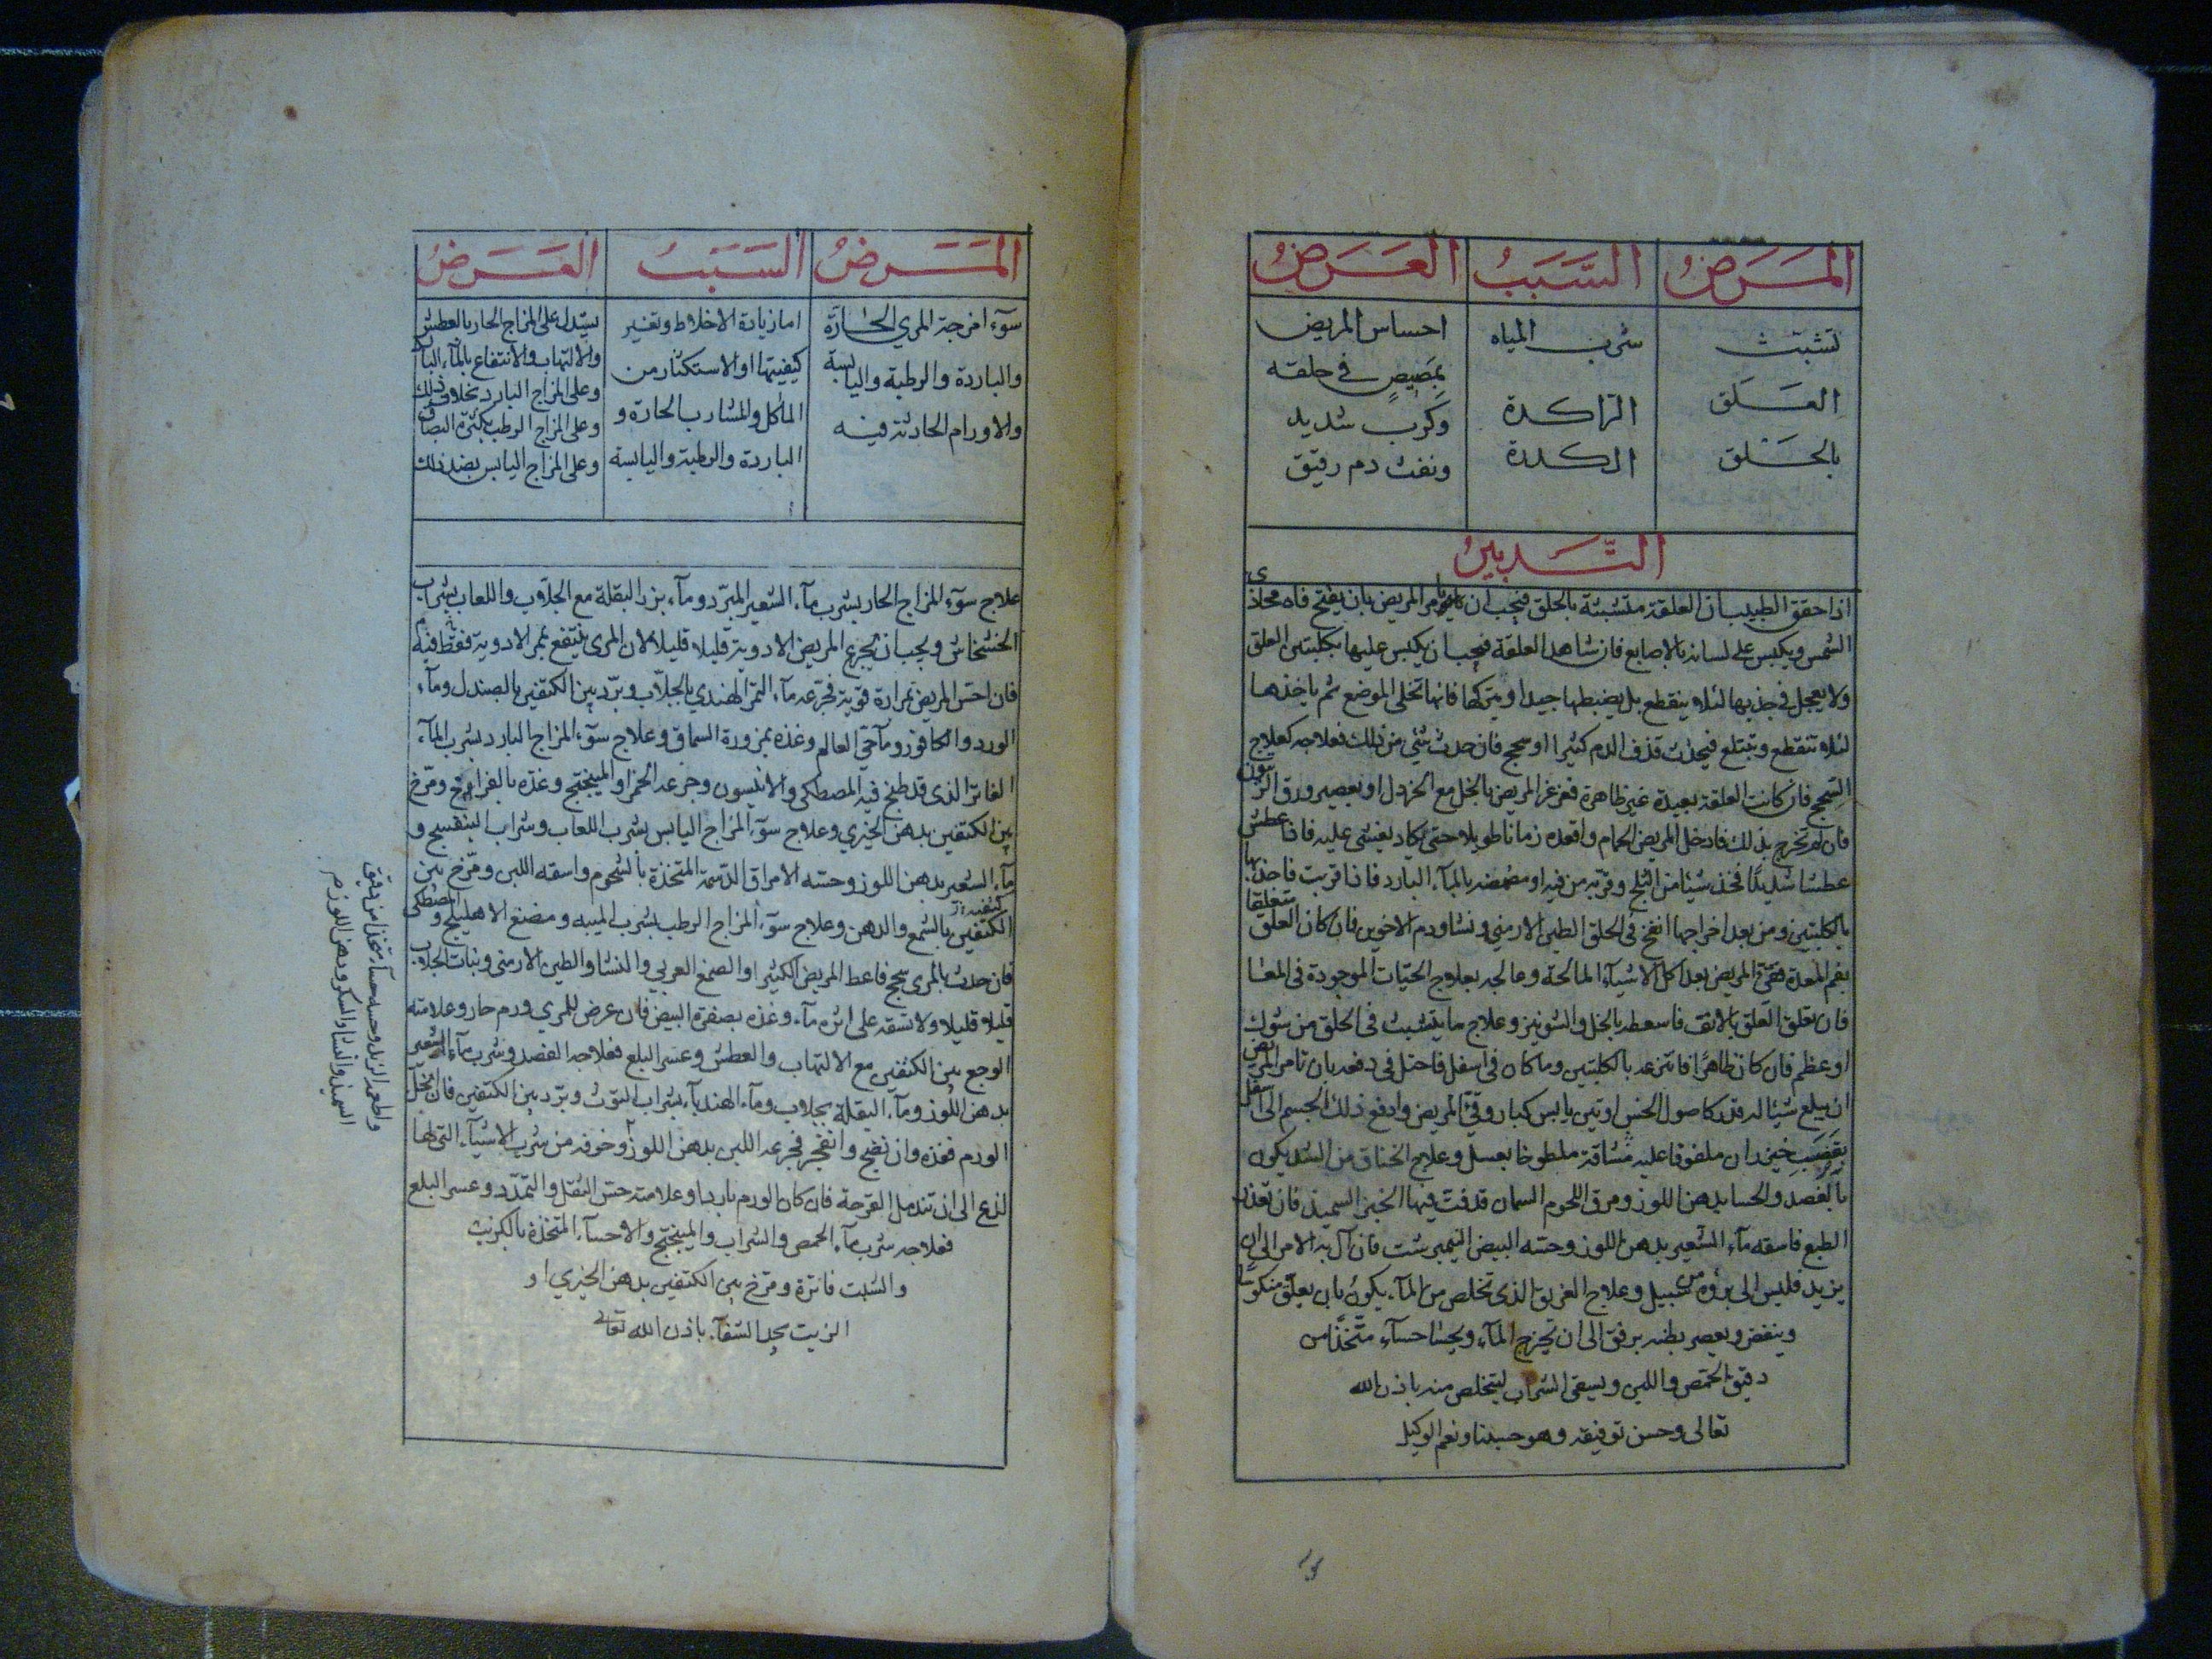 المَرَضُ السَّبَبُ العَرَضُ
تشبث
العَلَق
بالحَلق
شرب المياه
الراكدة
الكدرة
احساس المريض
بمَصِيصٍ في حلقه
وكرب شديد
ونفث دم رقيق
التَّدبيرُ
اذا حقق الطبيب ان العلقة متشبثة بالحلق فيجب ان المريض بان يفتح فاه محاذى
الشمس ويكبس على لسانه بالاصابع فان شاهد العلقة فيجب ان يكبس عليها بكلبتين العلق
ولا يعجل في جذبها لئلا ينقطع بل يضبطها جيدا ويتركها فانها تخلى الموضع ثم ياخذها
لئلا تنقطع وتبتلع فيحدث قذف الدم كثيرا او سحج فان حدث شئ من ذلك فعلاجه كعلاج
السحج فان كانت العلقة بعيدة غير ظاهرة فغرغر المريض بالخل مع الخردل او بعصير ورق الزيتون
فان لم تخرج بذلك فادخل المريض الحمام واقعده زمانا طويلا حتى يكاد يغشى عليه فاذا عطش
عطشا شديدًا فخذ شيئا من الثلج وقربه من فيه او مضمضه بالماء البارد فاذا قربت فاجذبها
بالكلبتين ومن بعد اخراجها انفخ في الحلق الطين الارمني ونشا ودم الاخوين فان كان العلق متعلقا
بفم المعدة فقيّ المريض بعد اكل الاشياء المالحة وعالجه بعلاج الحيات الموجودة في المعا
فان تعلق العَلق بالانف فاسعطه بالخل والشونيز وعلاج ما يتشبث في الحلق من شوك
او عظم فان كان ظاهرًا فانتزعه بالكلبتين وما كان في اسفل فاحتل في دفعه بان تامر المريض
ان يبلع شيئا له قدر كاصول الخس او تين يابس كبار وقيّ المريض وادفع ذلك الجسم الى اسفل
بقَضيب خيزران ملفوفا عليه مُشاقة ملطوخا بعسل وعلاج الخناق من الشد يكون
بالفصد والحسا بدهن اللوز ومرق اللحوم السمان قد فت فيها الخبز السميذ فان تعذر
الطبع فاسقه ماء الشعير بدهن اللوز وحسّه البيض النيمبرشت فان آل به الامر الى ان
يزيد فليس الى برؤه من سبيل وعلاج الغريق الذى تخلص من الماء يكون بان يعلق منكوسًا
وينفض ويعصر بطنه برفق الى ان يخرج الماء ويحسّا حساء متّخذًا من
دقيق الحمّص واللبن ويسقى الشراب ليتخلص منه باذن الله
تعالى وحسن توفيقه وهو حسبنا ونعم الوكيل
المَرَضُ السَبَبُ العَرَضُ
سوء امزجة المري الحارّة
والباردة والرطبة واليابسة
والاورام الحادثة فيه
اما زيادة الاخلاط وتغير
كيفيتها او الاستكثار من
الماكل والمشارب الحارة و
الباردة والرطبة واليابسة
يستدل على المزاج الحار بالعطش
والالتهاب والانتفاع بالماء البارد
وعلى المزاج البارد بخلاف ذلك
وعلى المزاج الرطب بكثرة البصاق
وعلى المزاج اليابس بضد ذلك
علاج سوء المزاج الحار بشرب ماء الشعير المبرّد وماء بزر البقلة مع الجلاب واللعاب بشراب
الخشخاش ويجب ان يجرع المريض الادوية قليلا قليلا لان المرى ينتفع بممر الادوية فقط فيه
فان احس المريض بمرارة قوية فجرّعه ماء التمر الهندي بالجلاّب وبرّد بين الكتفين بالصندل وماء
الورد والكافور وماء حيّ العالم وغذه بمزورة السماق وعلاج سوء المزاج البارد بشرب الماء
الفاتر الذى قد طبخ فيه المصطكى والانيسون وجرعه الخمر او الميبختج وغذه بالفراريج ومرّخ
بين الكتفين بدهن الخيري وعلاج سوء المزاج اليابس بشرب اللعاب وشراب البنفسج و
ماء الشعير بدهن اللوز وحسّه الامراق الدسمة المتخذة بالشحوم واسقه اللبن ومرّخ بين
كتفيه بالشمع والدهن وعلاج سوء المزاج الرطب بشرب الميبه ومضغ الاهليلج والمصطكى
فان حدث بالمري سحج فاعط المريض الكثيرا والصمغ العربي والنشا والطين الارمنى ونبات الجلاب
قليلا قليلا ولا تسقه على اثره ماء وغذه بصفرة البيض فان عرض للمري ورم حار وعلامته
الوجع بين الكتفين مع الالتهاب والعطش وعسر البلع فعلاجه الفصد وشرب ماء الشعير
بدهن اللوز وماء البقلة بجلاب وماء الهندباء بشراب التوث وبرّد بين الكتفين فان انحلّ
الورم فغذه وان نضج وانفجر فجرعه اللبن بدهن اللوز وخوفه من شرب الاشياء التى لها
لذع الى ان تندمل القرحة فان كان الورم باردا وعلامته حسّ الثقل والتمدّد وعسر البلع
فعلاجه شرب ماء الحمص والشراب والميبختج والاحساء المتخذة بالكرنب
والشبت فاترة ومرّخ بين الكتفين بدهن الخيري او
الزيت يجد الشفاء باذن الله تعالى
واطعمه الزبد وحسه حساء يتخذ من دقيق
السميذ والنشا والسكر ودهن اللوز